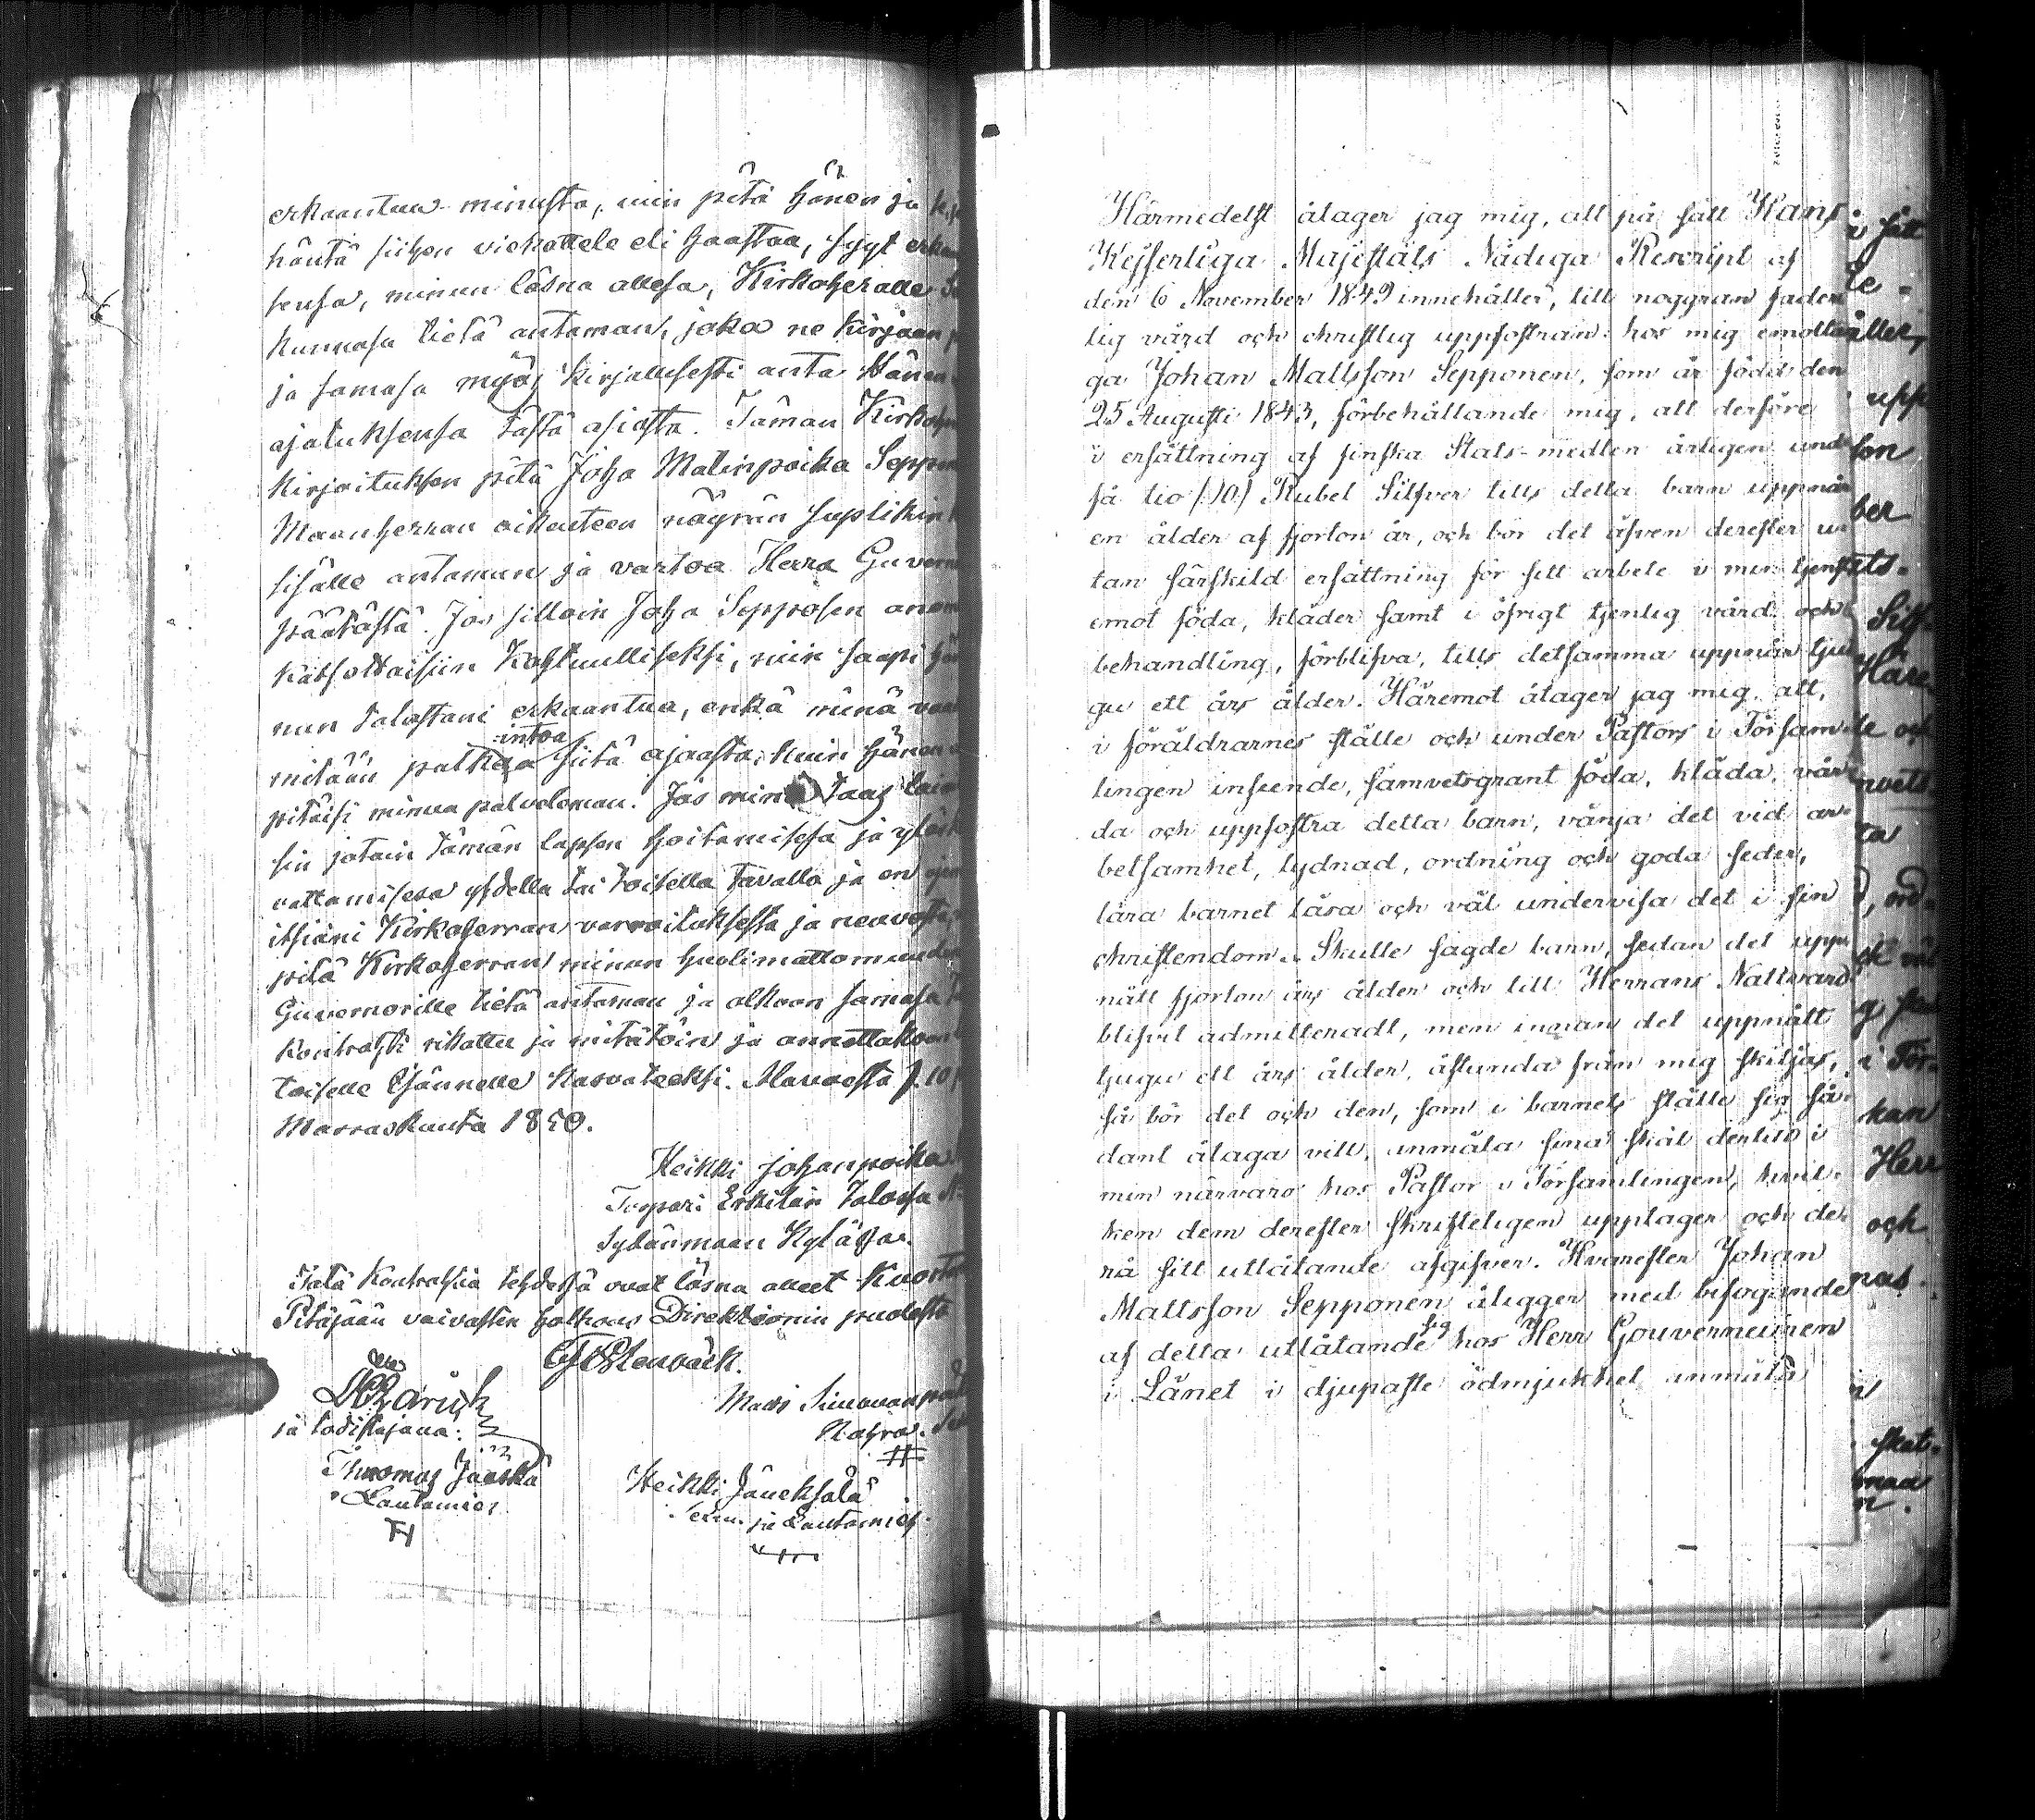 erkaantua minusta, niin pitä hänen ja
häntä siihen viekottele eli haastaa, syyt
sensa, minun läsna ollesa, Kirkoherralle
kunnasa tietä antaman, joka ne kirjaan
ja samasa myös kirjallisesti anta hänen
ajatuksensa tästä asiasta. Tämän
kirjoituksen pitä Joha Matinpoika
Maanherran oikeuteen nöyrän suplikin
sisälle antaman ja vartoa Herra
päätöstä. Jos silloin Joha Sepposen
katsottaisiin kohtuulliseksi, niin saapi
nun talostani erkaantua, enkä minä
intoa
mitään palkaa siitä ajaasta, kuin hänen
pitäisi minua palveleman. Jos minä taas
sin jotain tämän lapsen hoitamisesa ja
vattamisesa yhdella tai toisella tavalla ja en
itsiäni Kirkoherran varoituksesta ja neuvosta,
pitä Kirkoherran minun huolimattomuuden
Guvernorille tietä antaman ja olkoon samasa
Kontrahti rikottu ja mitätöin ja annettakoon
toiselle Isännelle kasvateeksi. Alavuesta p. 10
Marraskuuta 1850.
Heikki Johanpoika
Erkilän Talosta
Sydänmaan Kyläsä.
Tätä Kontrahtia tehdesä ovat läsna olleet
Pitäjään vaivasten holhous Direktionin puolesta
ja todistajana:
Thuomas Jääskä
Lautamies
Matts
Heikki Jäneksälä
ja Lautamies.
Härmedelst åtager jag mig, att på sätt Hans
Kejserliga Majestäts Nådiga Rescript af
den 6 November 1849 innehåller, till noggran fader
lig vård och christlig uppfostran hos mig emotta
ga Johan Mattsson Sepponen, som är född den
25 Augusti 1843, förbehållande mig, att derföre
i ersättning af finska Stats-medlen årligen und
få tio /:10:/ Rubel Silfver tills detta barn uppnår
en ålder af fjorton år, och bör det äfven derefter u
tan särskild ersättning för sitt arbete i min tjenst
emot föda, kläder samt i öfrigt tjenlig vård och
behandling, förblifva, tills detsamma uppnår tju
gu ett års ålder. Häremot åtager jag mig att,
i föräldrarnes ställe och under Pastors i Försam
lingen inseende, samvetsgrant föda, kläda, vår
da och uppfostra detta barn, vänja det vid ar
betsamhet, lydnad, ordning och goda seder,
lära barnet läsa och väl undervisa det i sin
christendom. Skulle sagde barn, sedan det upp
nått fjorton års ålder och till Herrans Nattvard
blifvit admitteradt, men innan det uppnått
tjugu ett års ålder, åstunda från mig skiljas,
så bör det och den, som i barnets ställe sig så
dant åtaga vill, anmäla sina skäl dertill i
min närvaro hos Pastor i Församlingen, hvil
ken dem derefter skrifteligen upptager och der
på sitt utlåtande afgifver. Hvarefter Johan
Mattsson Sepponen åligger med bifogande
af detta utlåtande sig hos Herr Gouverneuren
i Länet i djupaste ödmjukhet anmäla